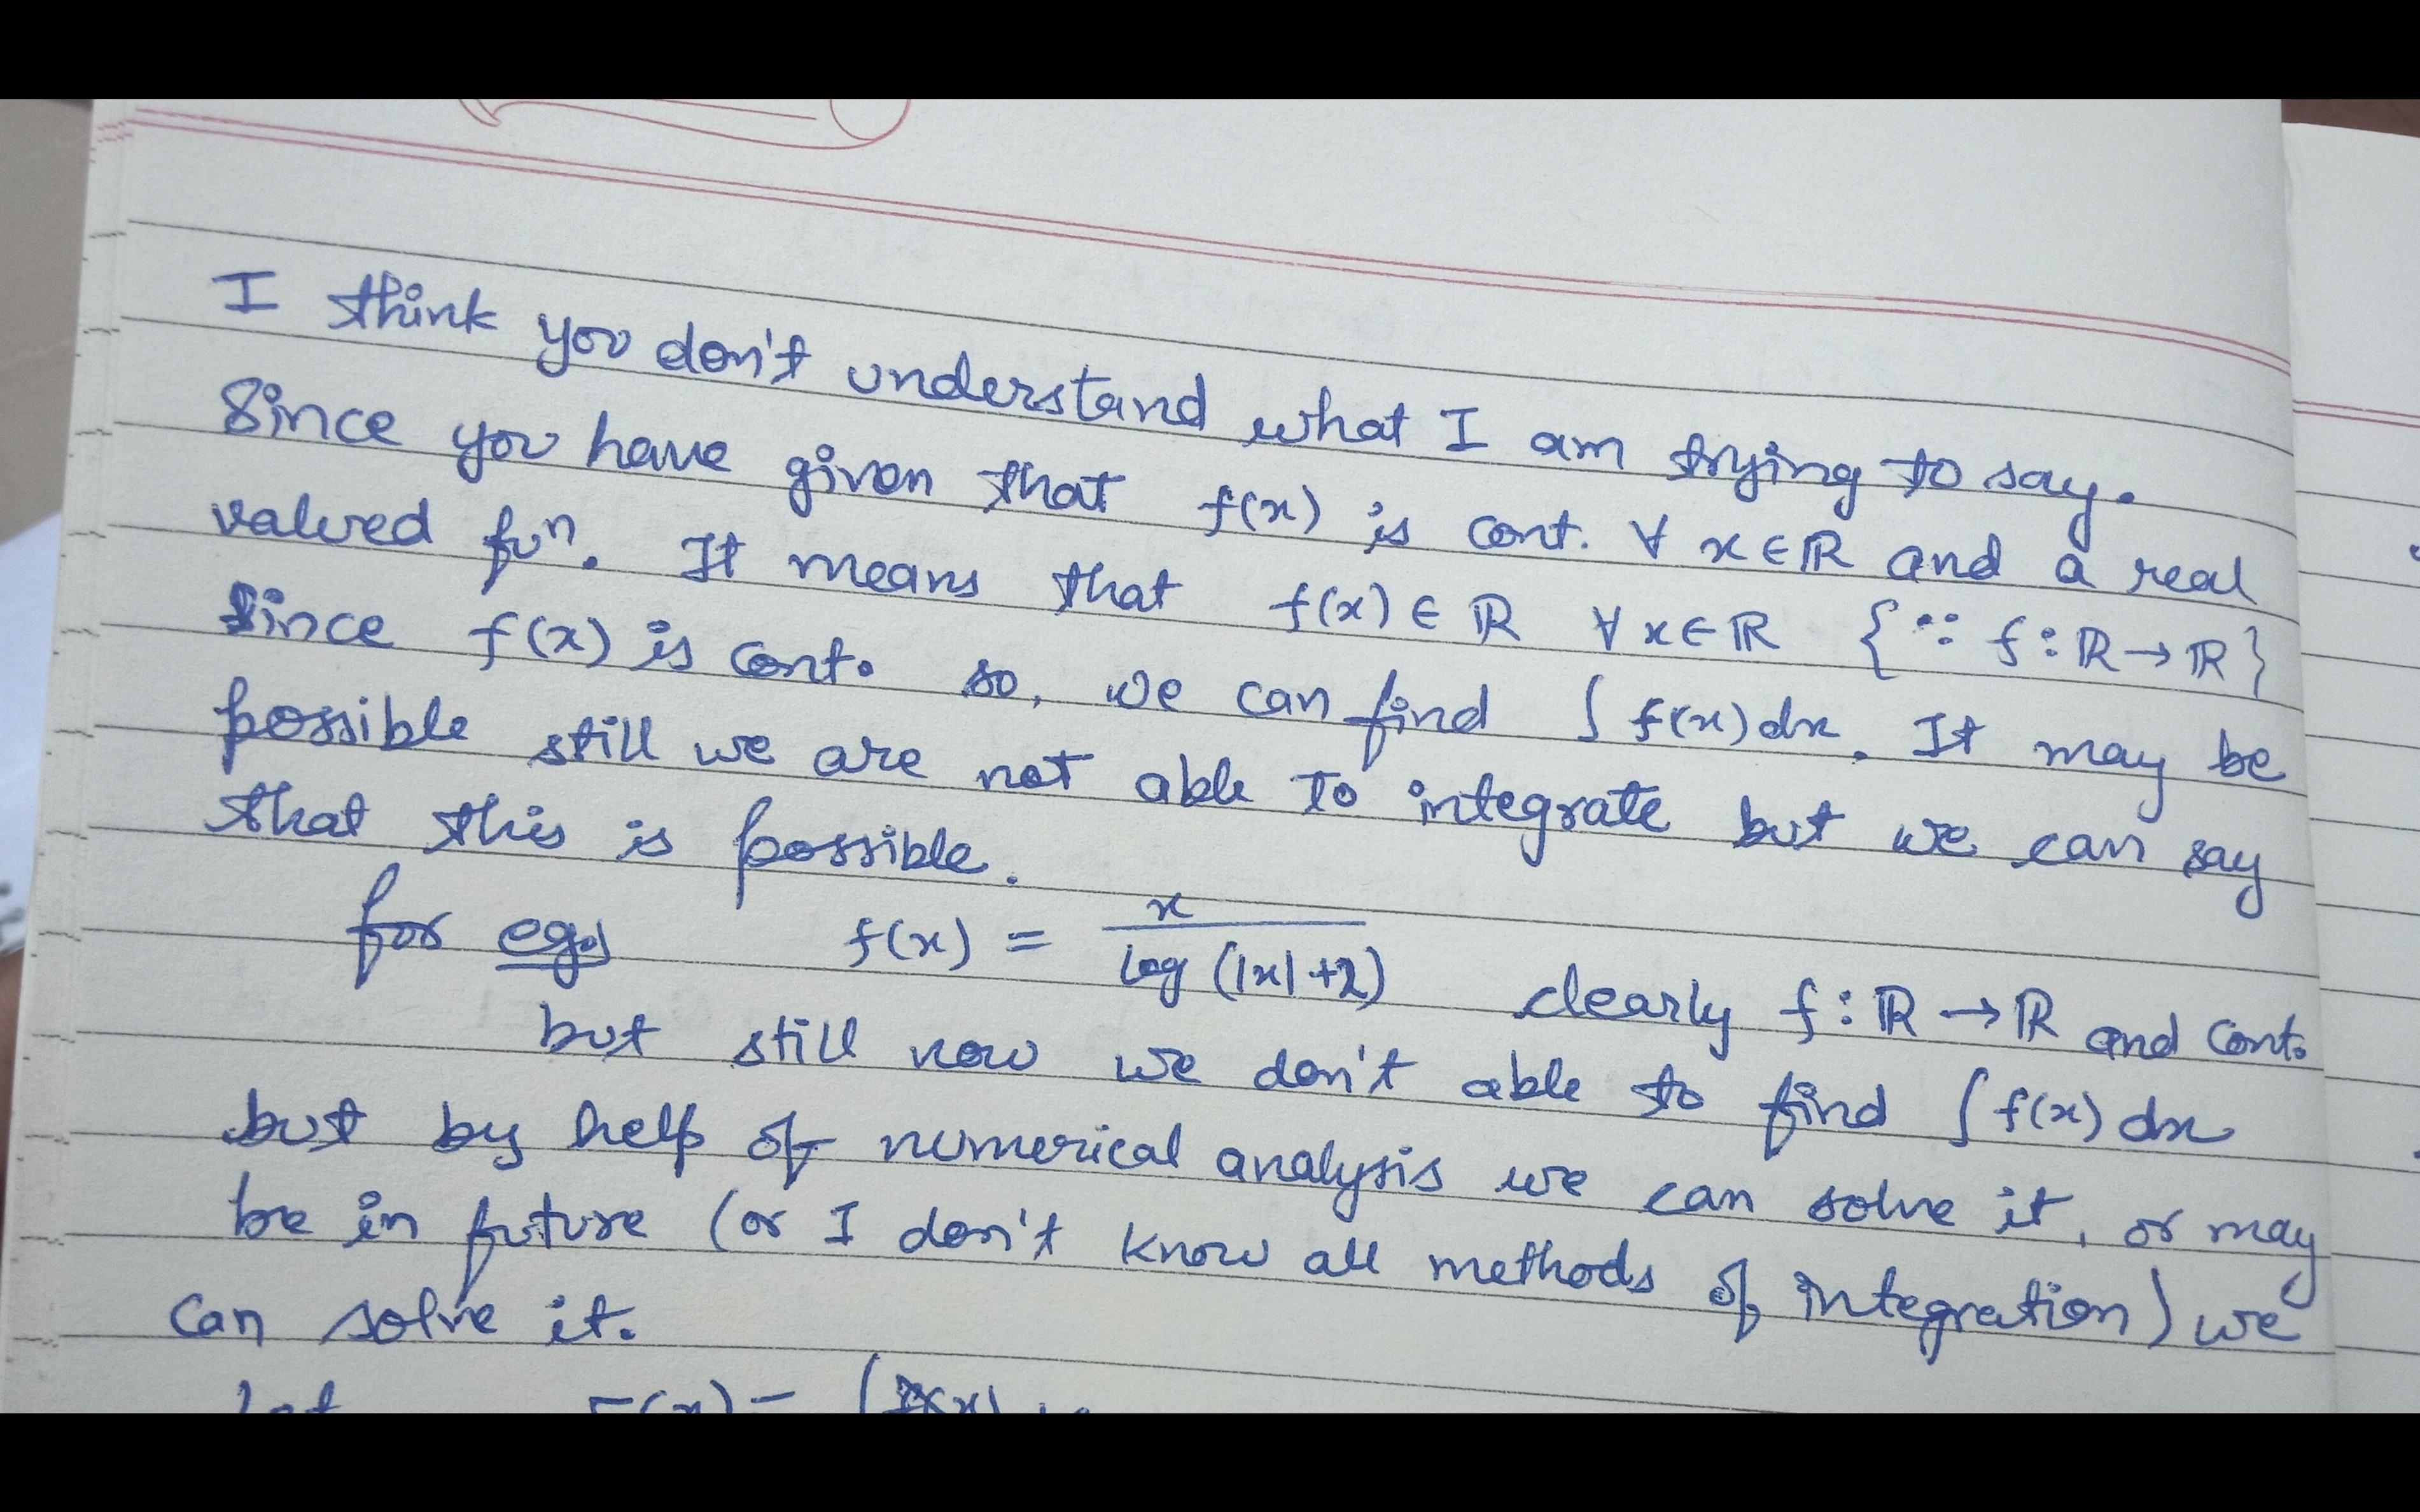 I think you don't understand what I am trying to say.
Since you have given that f(x) is cont. ∀ x∈ℝ and a real
valued fuⁿ. It means that f(x) ∈ ℝ ∀ x∈ℝ {∵ f:ℝ→ℝ}
Since f(x) is cont. so, we can find ∫ f(x)dx. It may be
possible still we are not able to integrate but we can say
that this is possible.
for eg. f(x) = x / log (|x|+2) clearly f:ℝ→ℝ and cont.
but still now we don't able to find ∫ f(x) dx
but by help of numerical analysis we can solve it, or may
be in future (or I don't know all methods of integration) we
can solve it.